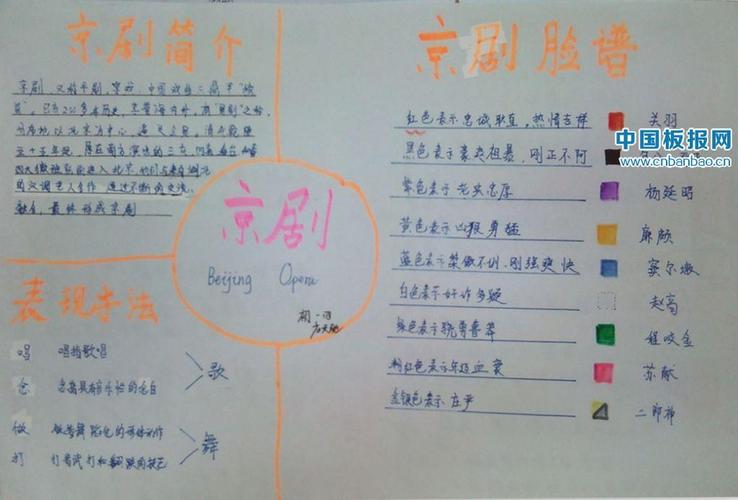 京剧简介
京剧，又称平剧，京戏，中国戏曲三鼎甲"榜
首"。已有200多年历史，
分布地以北京为中心，遍及全国。清代乾隆
五十五年起，原在南方演出的三庆，四喜，春台，和春
四大徽班陆续进入北京，他们与来自湖北
的汉调艺人合作，通过不断的交流，
融合，最终形成京剧
京剧
Beijing Opera
初一
表现手法
唱 唱指歌唱
念 念指具有音乐性的念白
歌
做 做指舞蹈化的形体动作
打 打指武打和翻跌的技艺
舞
京剧脸谱
红色表示忠诚耿直，热情吉祥 关羽
黑色表示豪爽粗暴，刚正不阿
中国板报网
www.cnbanbao.cn
紫色表示老吏忠厚 杨延昭
黄色表示凶狠勇猛 廉颇
蓝色表示桀傲不训，刚强爽快 窦尔墩
白色表示奸诈多疑 赵高
绿色表示骁勇鲁莽 程咬金
粉红色表示年迈血衰 苏献
金银色表示庄严 二郎神